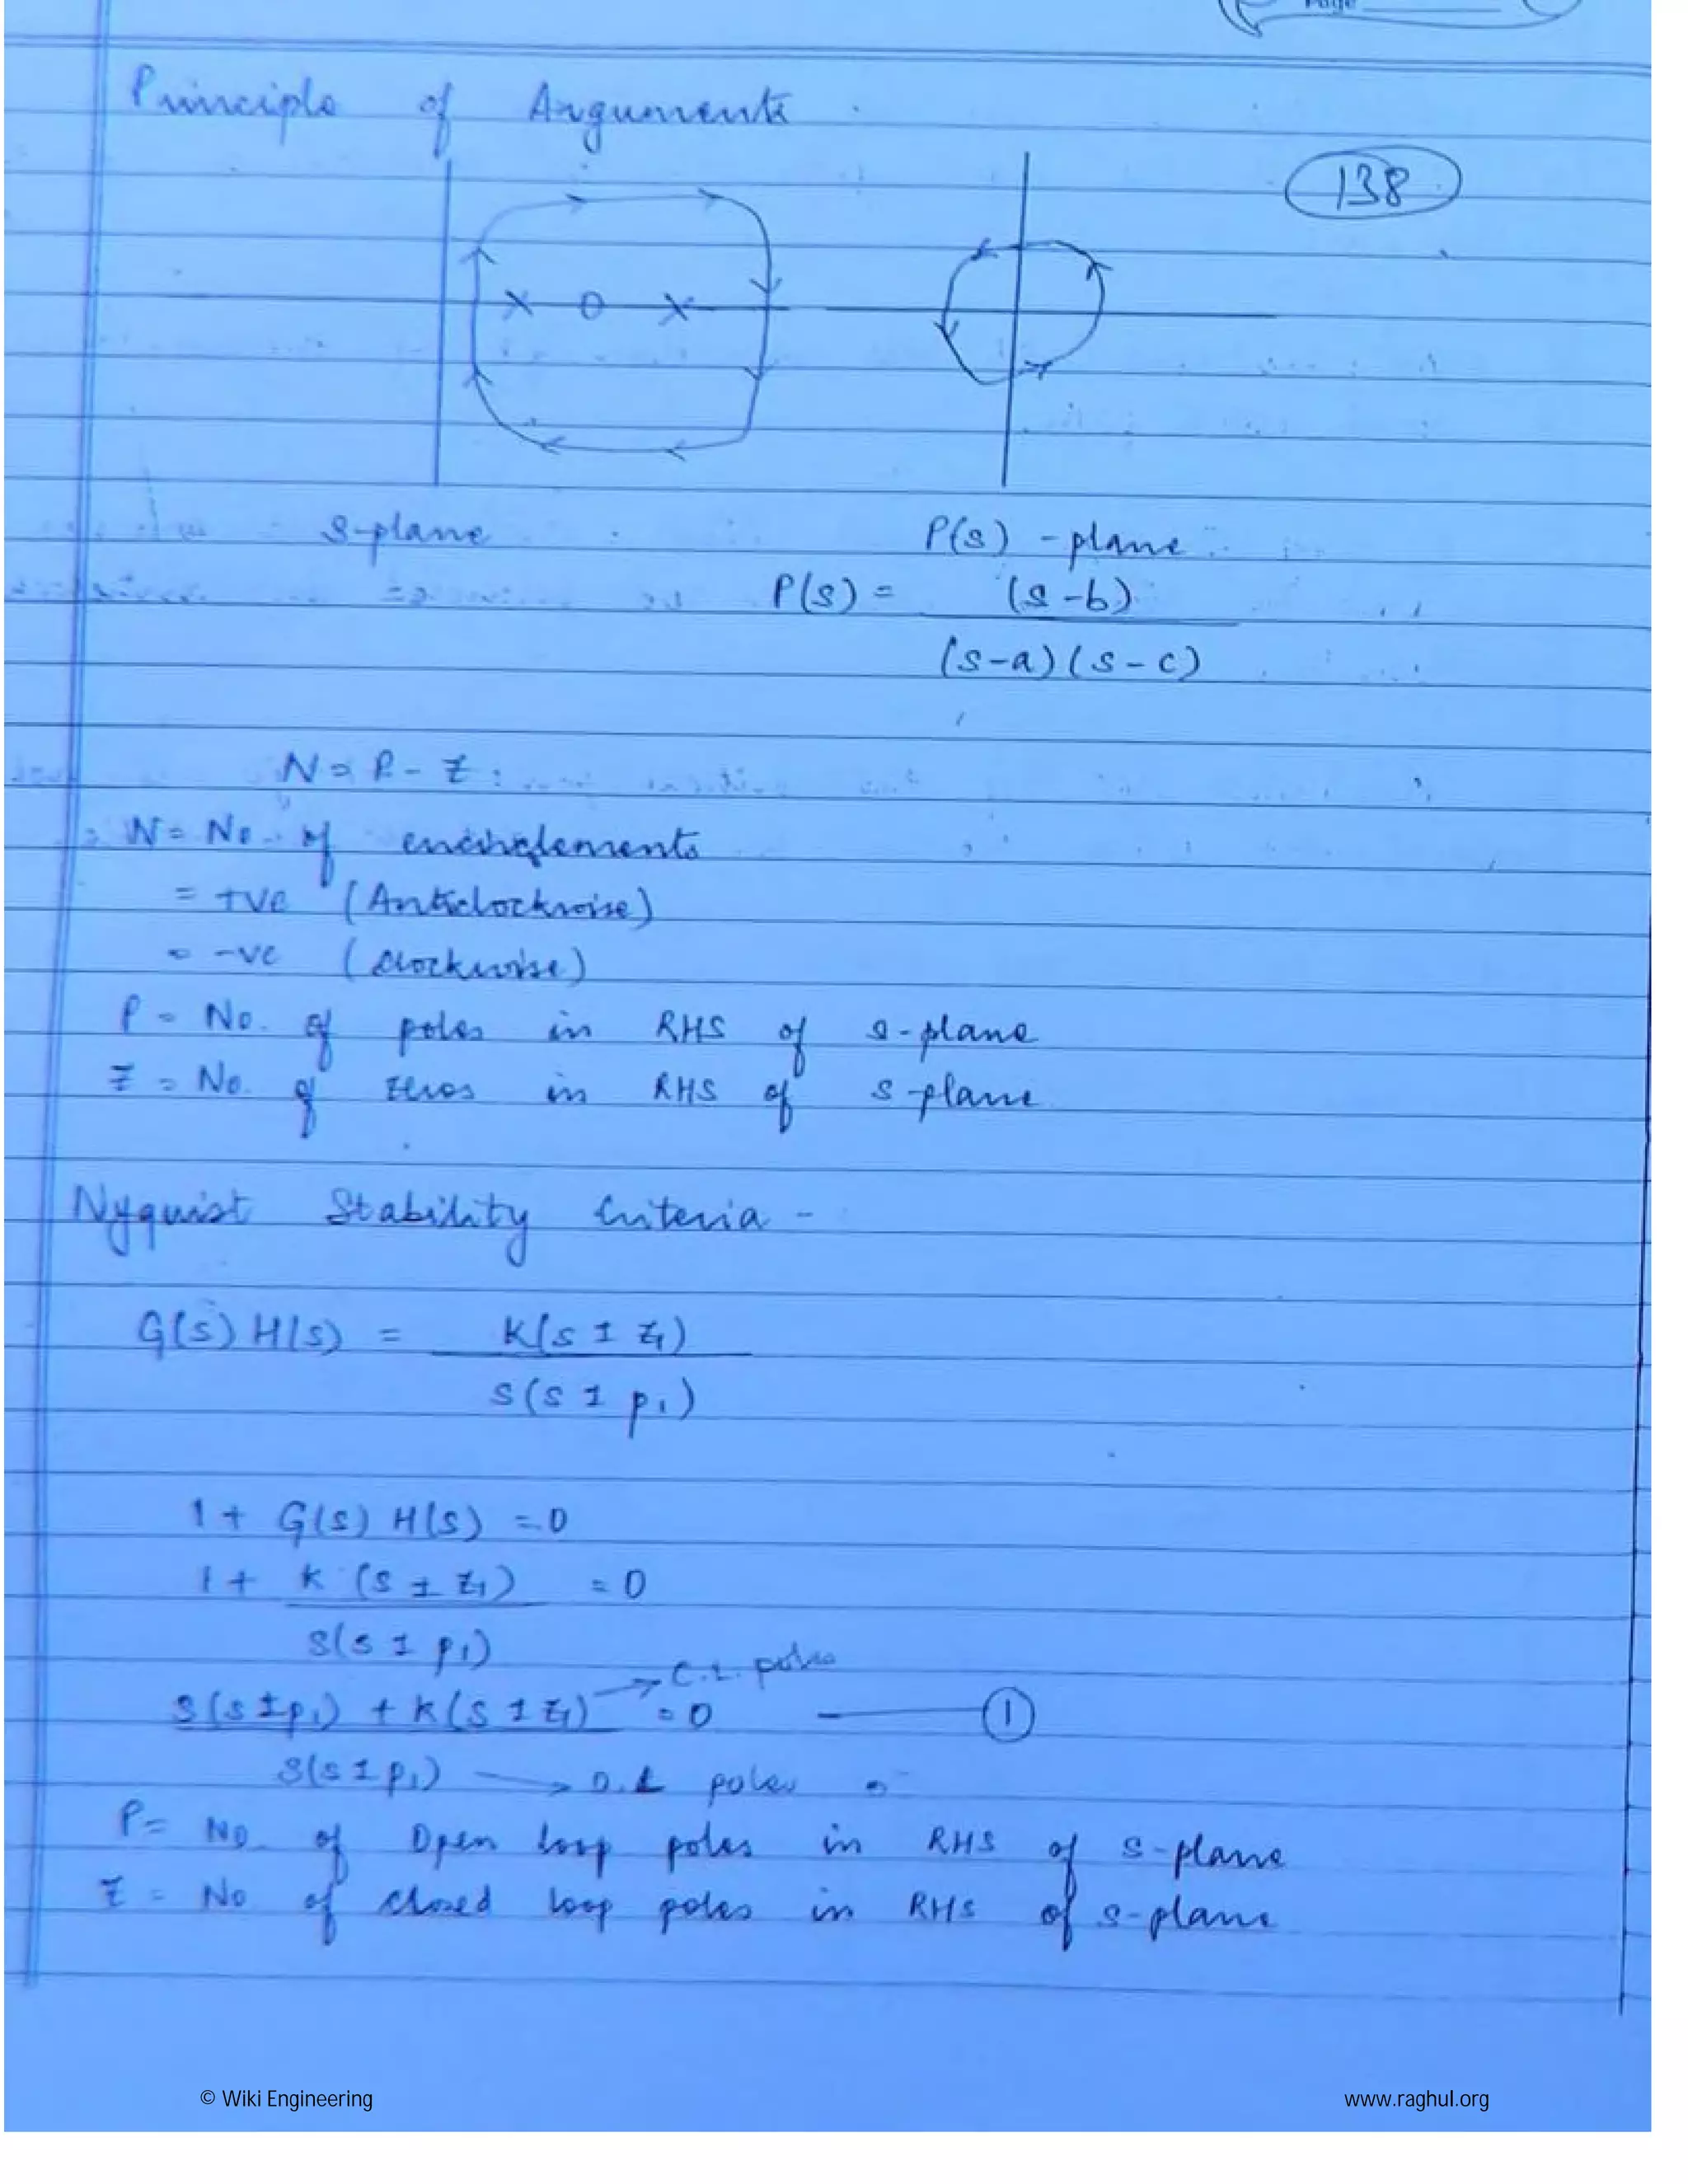 Page
Principle of Arguments
138
s-plane
P(s) - plane
P(s) = (s-b)
(s-a)(s-c)
N = P - Z
N = No. of encirclements
= +ve (Anticlockwise)
= -ve (clockwise)
P = No. of poles in RHS of s-plane
Z = No. of zeros in RHS of s-plane
Nyquist Stability Criteria -
G(s) H(s) = K(s ± z1)
s(s ± p1)
1 + G(s) H(s) = 0
1 + K (s ± z1) = 0
s(s ± p1)
→ C.L. poles
s(s ± p1) + K(s ± z1) = 0 — 1
s(s ± p1) → O.L poles
P = No. of Open loop poles in RHS of s-plane
Z = No of closed loop poles in RHS of s-plane
© Wiki Engineering
www.raghul.org